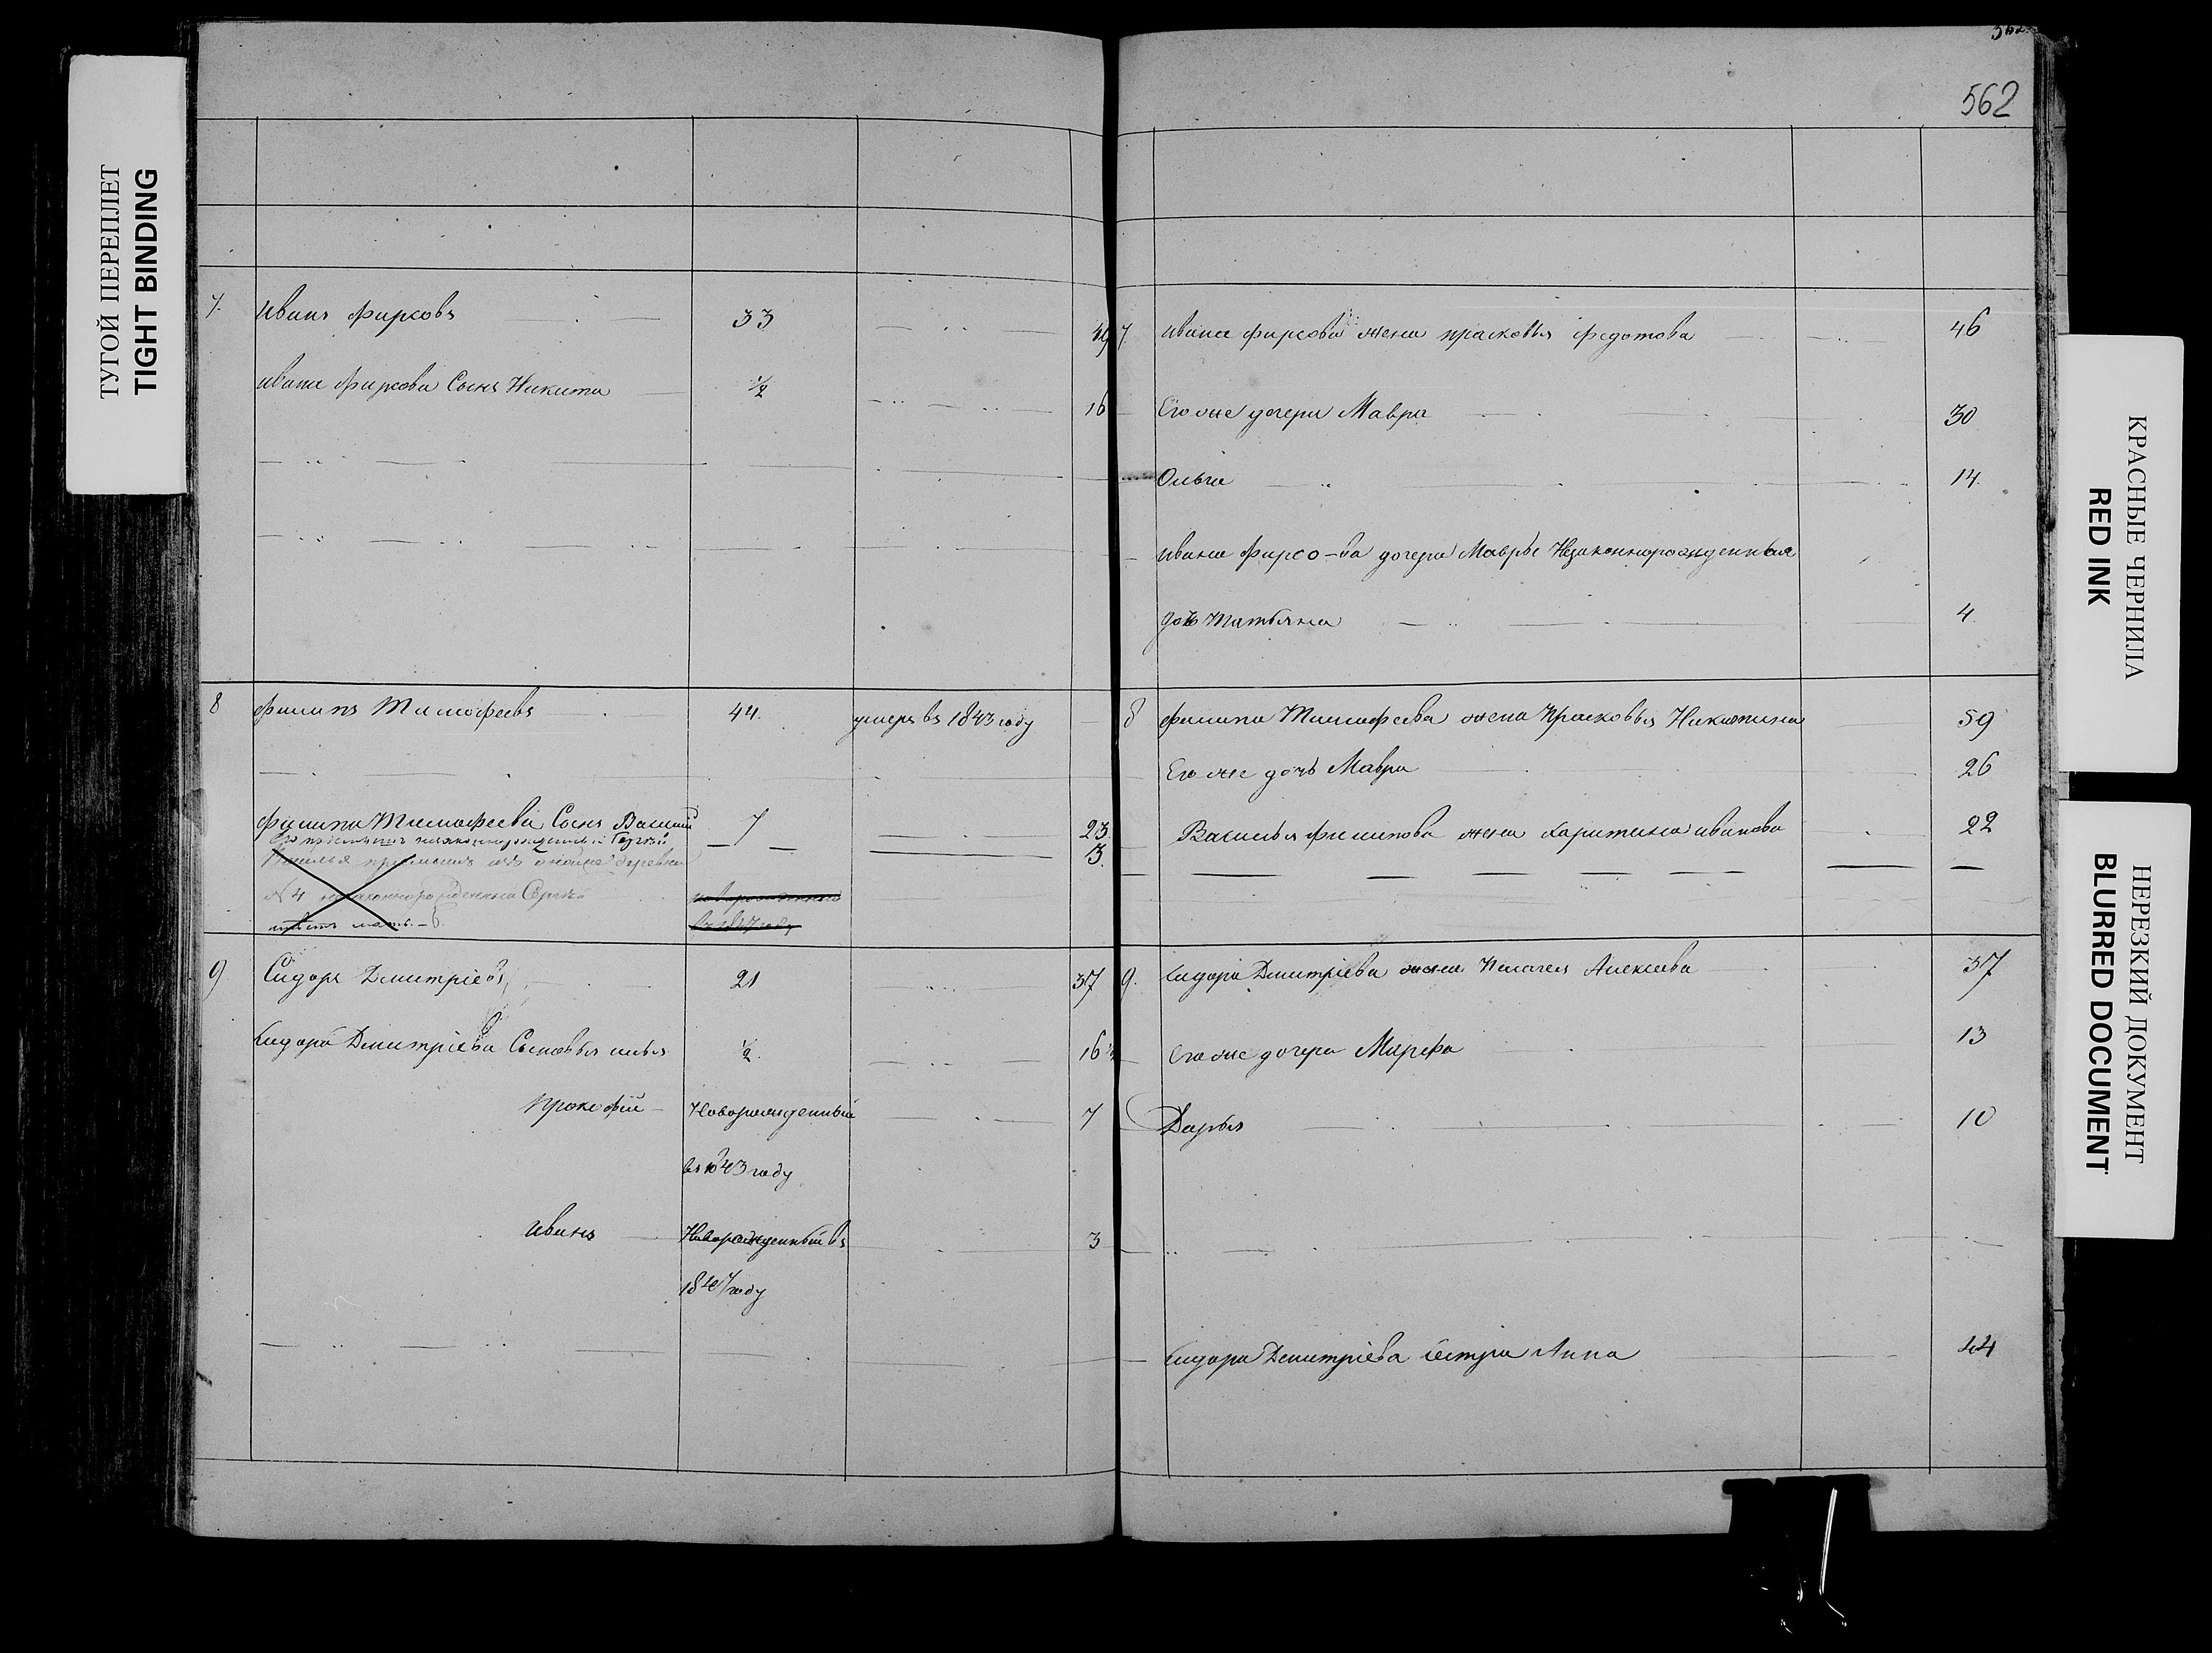 ТУГОЙ ПЕРЕПЛЕТ
TIGHT BINDING
7. Иванъ Фирсовъ 33 49
Ивана Фирсова Сынъ Никита ½ 16
8 Филипъ Тимофеевъ 44. умеръ въ 1843 году
Филипа Тимофеева Сынъ Василий 7 23.
незаконнорожденный 3.
деревни
№ 4 незаконнорожденный Сергей новорожденный
въ 1847 году
9 Сидоръ Дмитріевъ 21 37
Сидора Дмитріева Сыновья Илья ½. 16½
Прокофій Новорожденный 7
въ 1843 году
Иванъ Новорожденный въ 3
1847 году
562
562
7. Ивана Фирсова жена Прасковья Федотова 46
Его же дочери Мавра 30
Ольга 14.
Ивана Фирсо-ва дочери Мавры Незаконнорожденная
дочь Татьяна 4
8 Филипа Тимофеева жена Прасковья Никитина 59
Его же дочь Мавра 26
Василья Филипова жена Харитина Иванова 22
9. Сидора Дмитріева жена Пелагея Алексеева 37
Его же дочери Марфа 13
Дарья 10
Сидора Дмитріева сестра Анна 44
КРАСНЫЕ ЧЕРНИЛА
RED INK
НЕРЕЗКИЙ ДОКУМЕНТ
BLURRED DOCUMENT